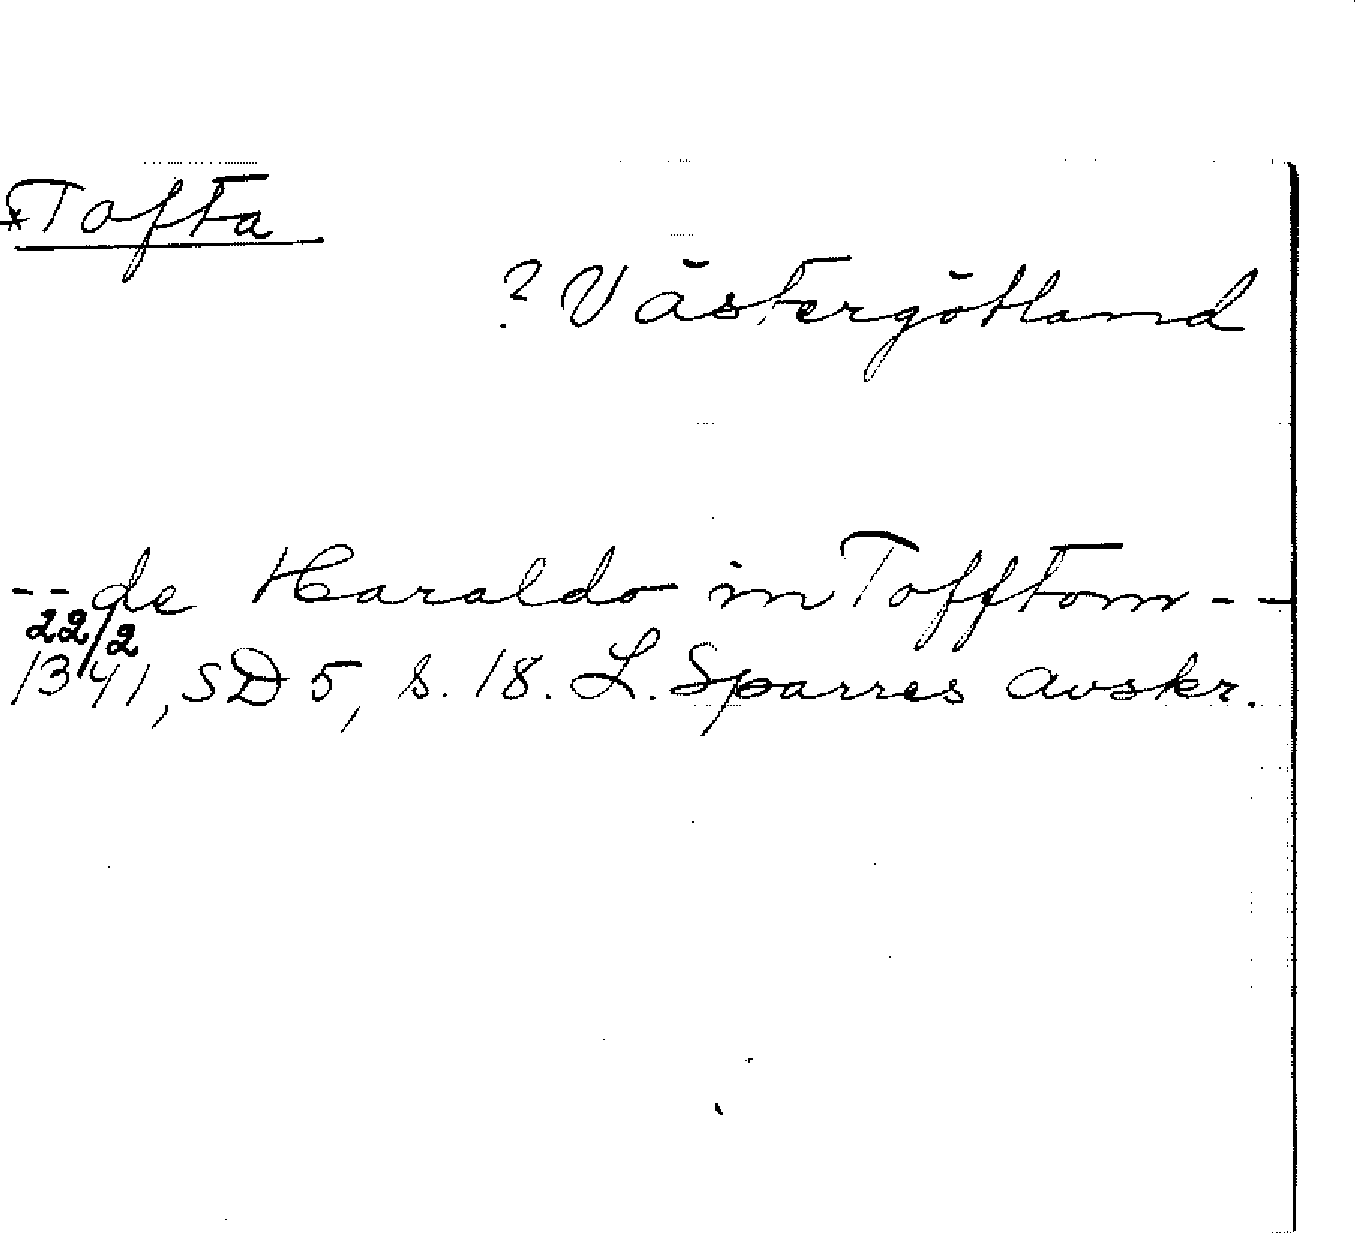 *Tofta
? Västergötland
-- de Haraldo in Tofftom --
22/2
1341, SD 5, s. 18. L. Sparres avskr.